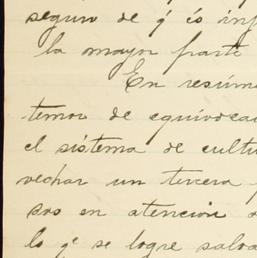 seguro de q̃ es inf
la mayor parte
En resúm
temor de equivoca
el sistema de cultu
vechar un tercera
sos en atención a
lo qe se logre salva